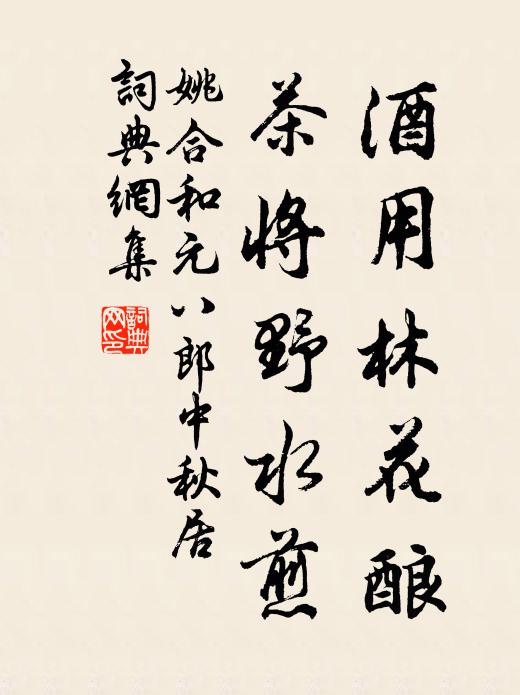 酒用林花酿
茶将野水煎
姚合和元八郎中秋居
詞典網集
詞典
网印